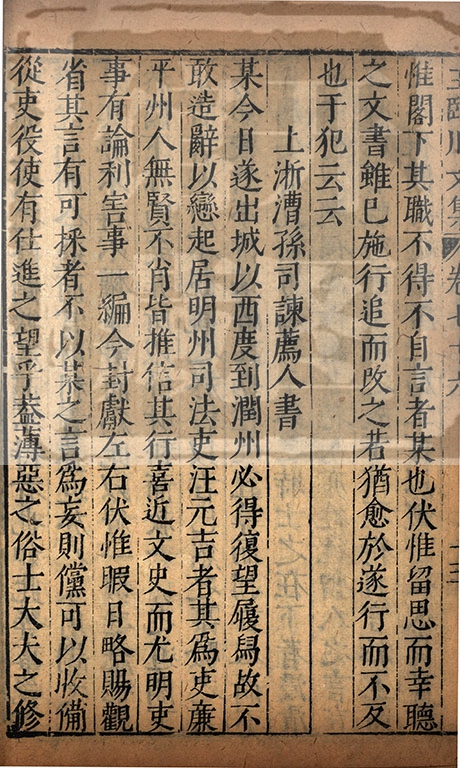 王臨川文集 卷七十六
惟閣下其職不得不自言者某也伏惟留思而幸聽
之文書雖已施行追而改之若猶愈於遂行而不反
也干犯云云
上浙漕孫司諫薦人書
某今日遂出城以西度到潤州必得復望履舄故不
敢造辭以戀起居明州司法吏汪元吉者其爲吏廉
平州人無賢不肖皆推信其行喜近文史而尤明吏
事有論利害事一編今封獻左右伏惟暇日略賜觀
省其言有可採者不以某之言爲妄則儻可以收備
從吏役使有仕進之望乎葢薄惡之俗士大夫之修